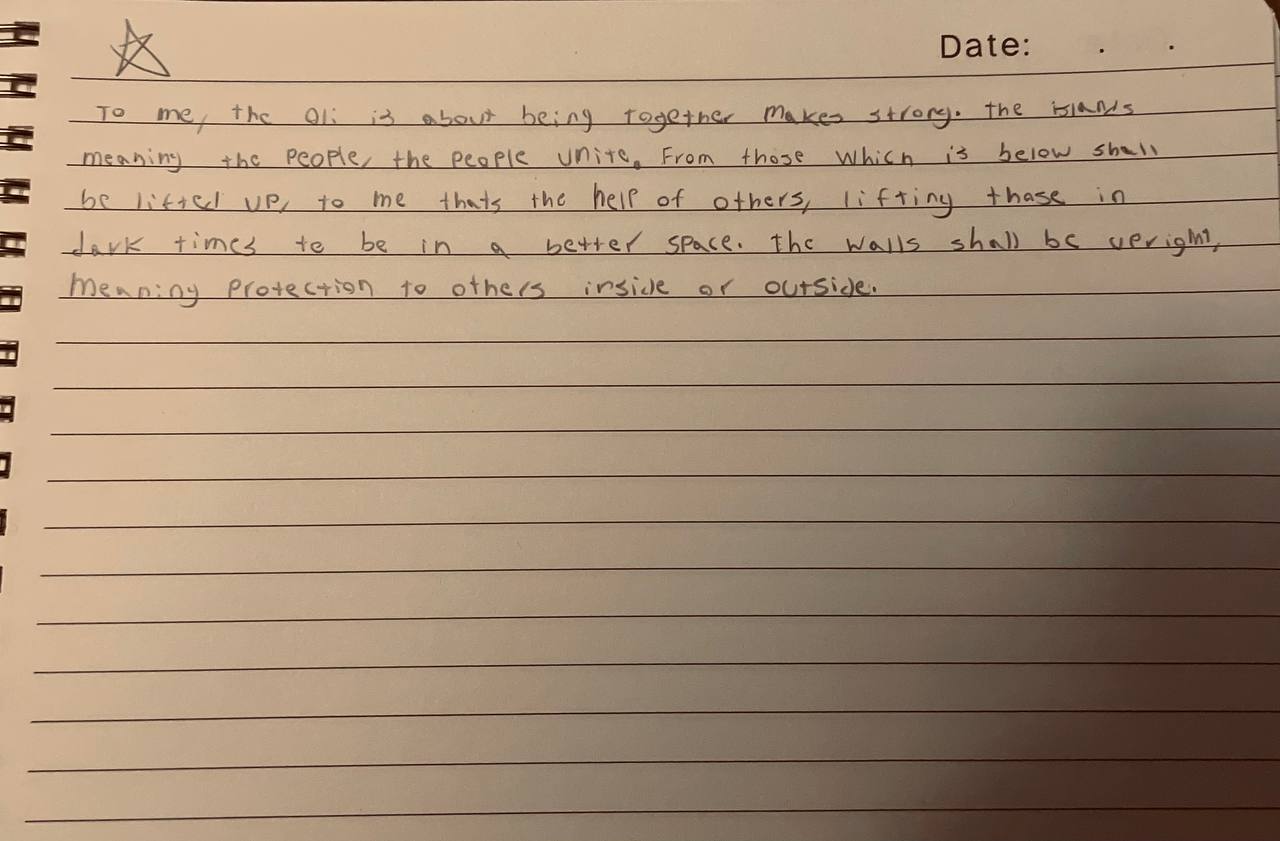 Date: . .
To me, the Oli is about being together makes strong. the islands
meaning the people, the people unite. From those which is below shall
be lifted up, to me thats the help of others, lifting those in
dark times to be in a better space. the walls shall be upright,
meaning protection to others inside or outside.